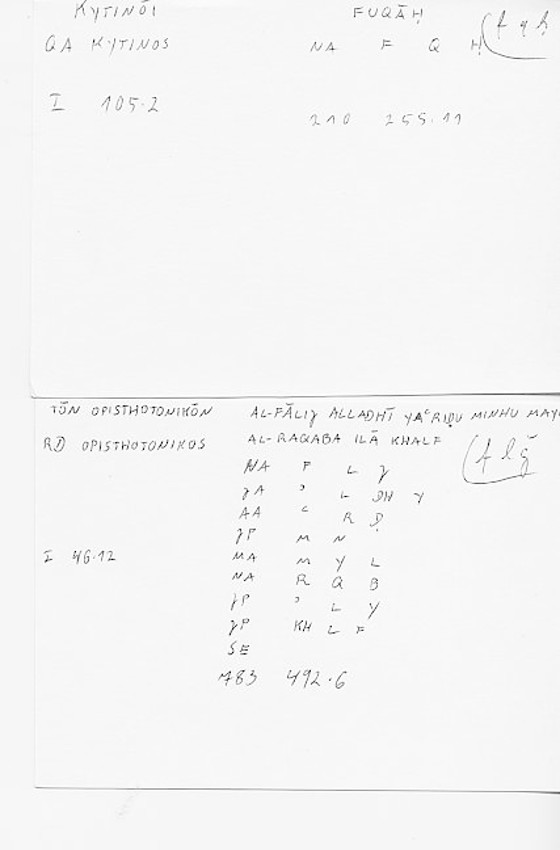 KYTINŌI FUQĀḤ
QA KYTINOS NA F Q Ḥ (f q ḥ
I 105.2 210 255.11
TŌN OPISTHOTONIKŌN AL-FĀLIJ ALLADHĪ YAʿRIḌU MINHU MAY
RD OPISTHOTONIKOS AL-RAQABA ILĀ KHALF (f l ǧ
NA F L J
JA ʾ L DH Y
AA ʿ R Ḍ
JP M N
I 46.12 MA M Y L
NA R Q B
JP ʾ L Y
JP KH L F
SE
783 492.6